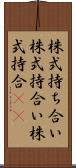 株式持ち合い
株式持合い株
式持合((